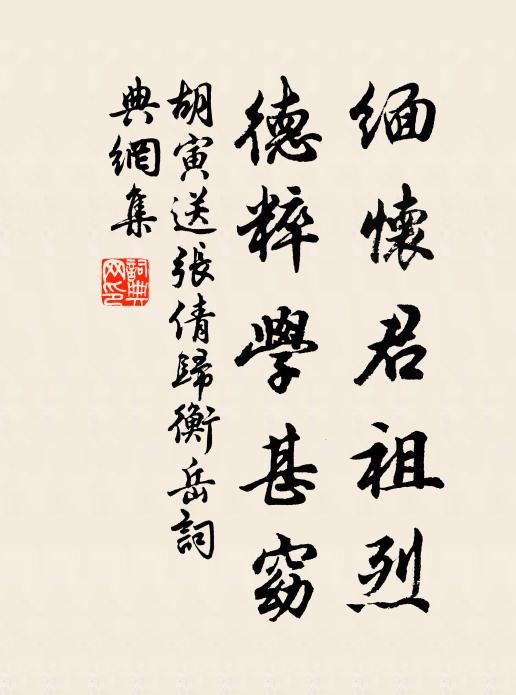 緬懷君祖烈
德粹學甚窈
胡寅送張倩歸衡岳詞
典網集
詞典網印